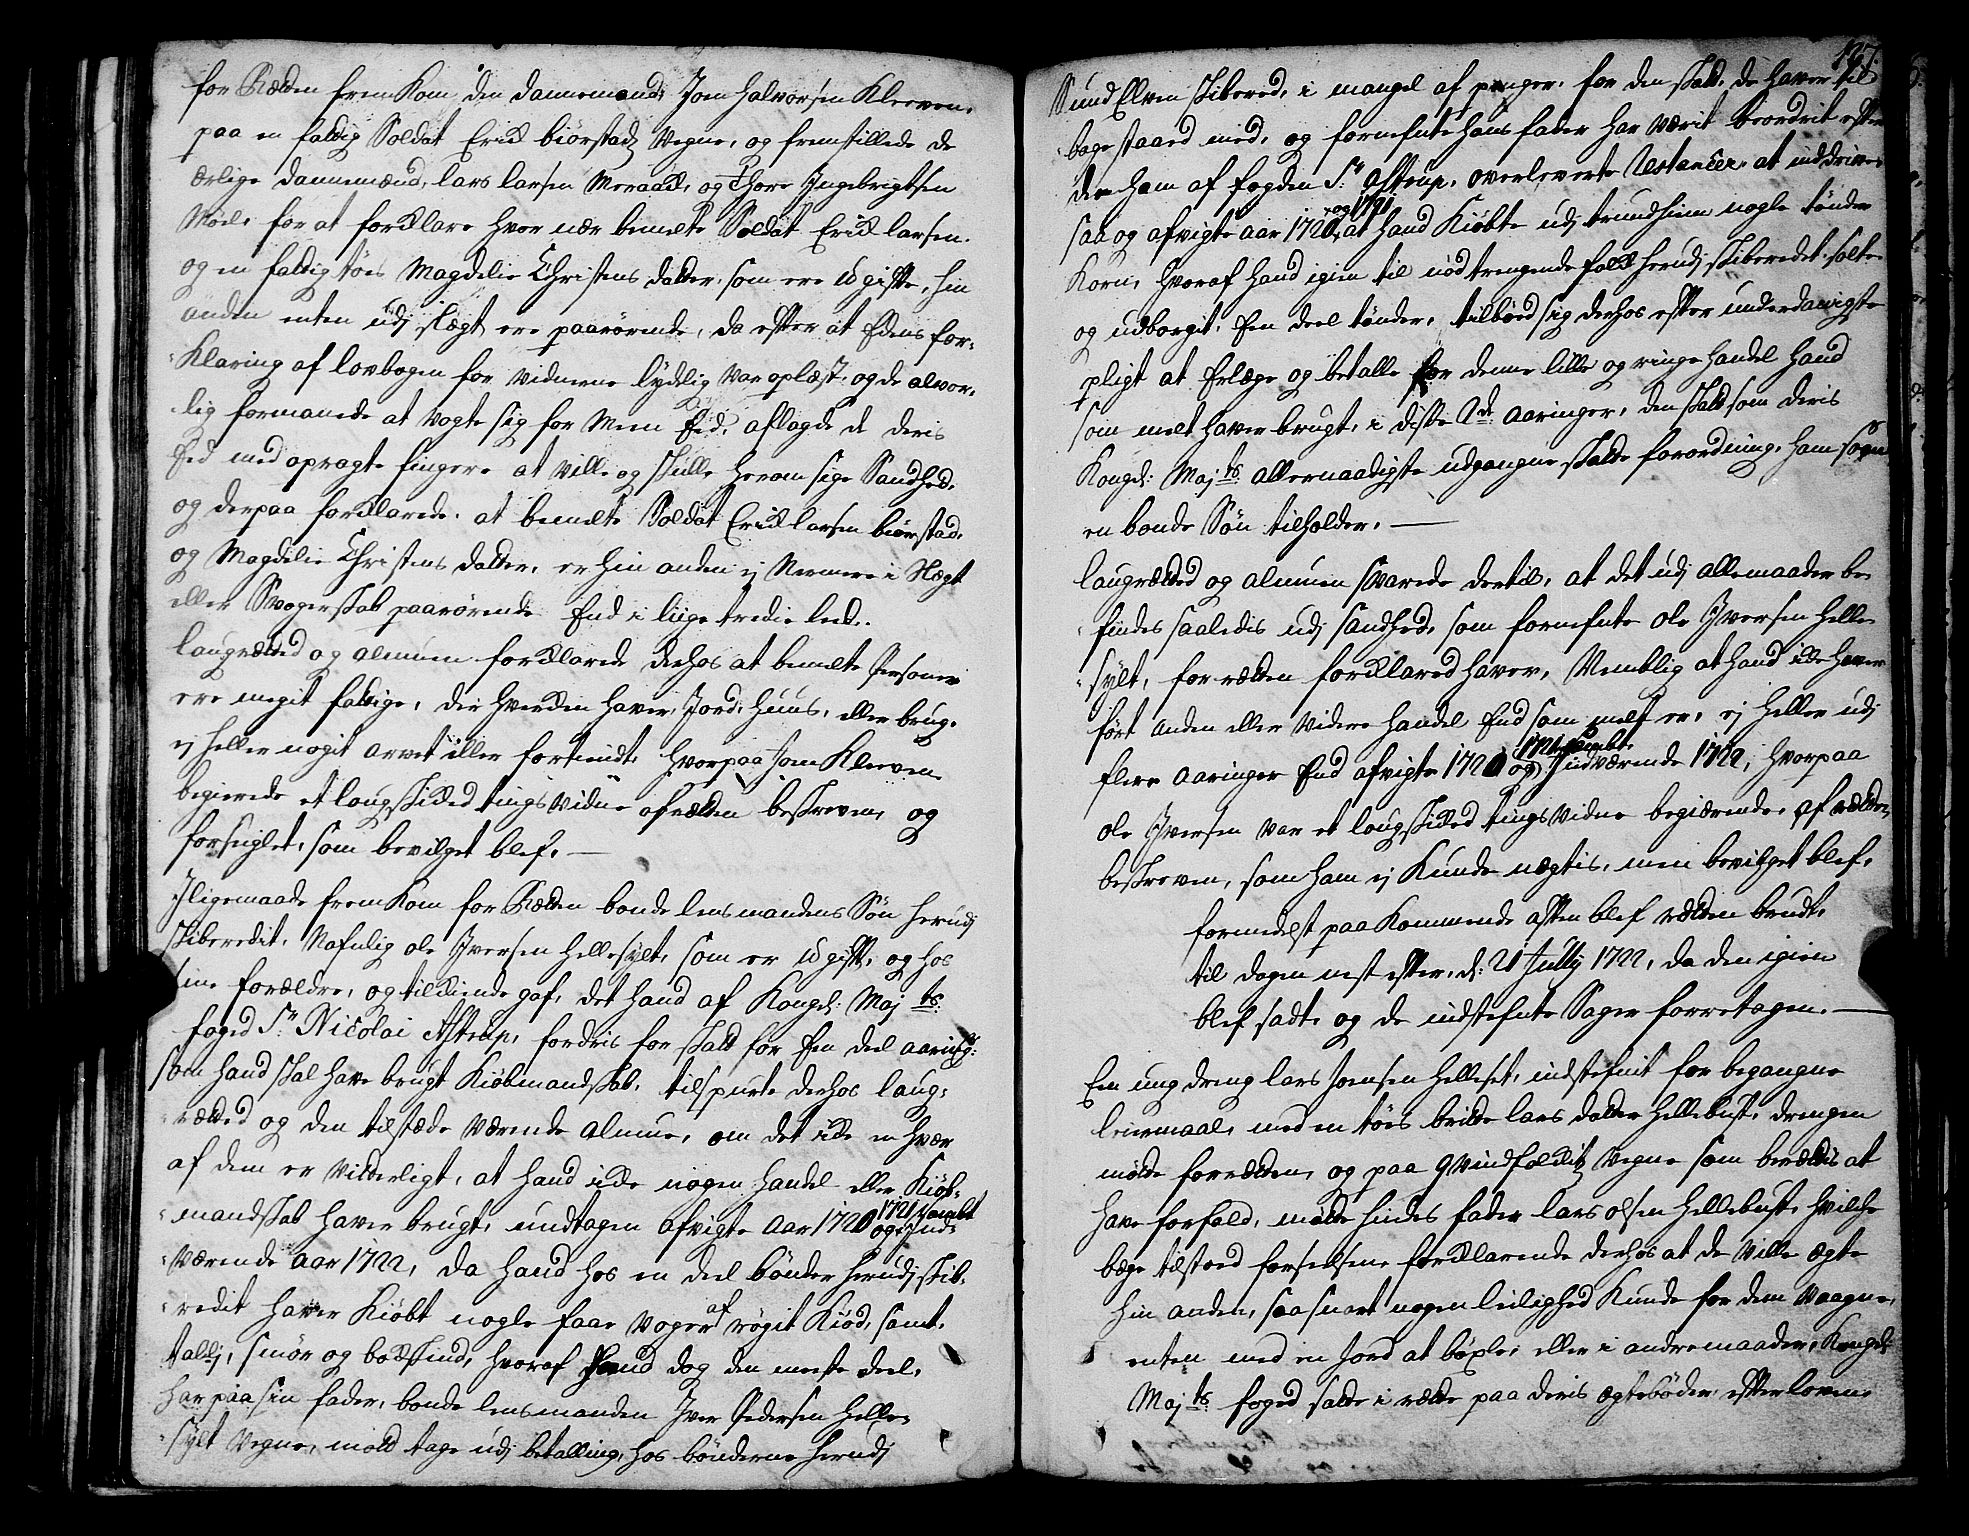 for Retten frem Kom den dannemand, Joen Halvorsen Kleeven,
paa en fattig Soldat Erich biørstads Vegne, og fremstillede de
Ærlige dannemænd, lars larsen Meraack, og Thore Ingebrigtsen
for at forklare hvor nær bemelte Soldat Erich larsen
og en fattig tøes Magdelie Christens datter, som ere ugifte, hin
anden enten udj slægt ere paarørende, da efter at Edens for-
Klaring af lovbogen for vidnerne lydelig var oplæst, og de alvor-
lig formanede at vogte sig for Meen Eed, aflagde de deris
Eed med opragte fingere at ville og skulle herom sige Sandhed,
og derpaa forklarede at bemelte Soldat Erich larsen biørstad,
og Magdelie Christens datter, er hin anden ej Nermere i Slægt
eller Svogerskab paarørende End i liige tredie leed.
laugrætted og almuen forklarede derhos at bemelte Personer
ere meget fattige, der hverken haver Jord, huus, eller brug,
ej heller nogit arvet eller fortient, hvorpaa Joen Kleeven
begierede et laugskicked tings vidne af retten beskreven, og
forseiglet, som bevilget blef. —
Iligemaade frem Kom for Retten bonde lensmandens Søn herudj
skiberedit, Nafnlig ole Iversen Hellesylt, som er ugift, og hos
sine forældre, og tilkiende gaf, det hand af Kongel: Maj ts
foged Sr Nicolai Astrup, fordris for skatt for Een deel aaringer
som hand skal have brugt Kiøbmandskab, tilspurte derhos laug-
rætted og den tilstæde værende almue, om det icke en hver
af dem er vitterligt, at hand icke nogen handel eller Kiøb-
mandskab haver brugt, undtagen afvigte aar 1720 1721 sambt og Ind-
værende aar 1722, da hand hos en deel bønder herudj skib-
redit haver Kiøbt nogle faae voger af røgit Kiød, samt
tallj, smør og bockskind, hvoraf hand dog den meste deel,
har paa sin fader, bonde lensmanden Iver Pedersen Helle-
sylt Vegne, mott tage udj betalling, hos bønderne herudj
127
Sund Elven skibered, i mangel af penger, for den skatt, de haver til
bage staaed med, og fornefnte hans fader har værit beordrit efter
den ham af fogden Sr Astrup, overleverte Restancer at inddrive,
saa og afvigte aar 1720, og 1721 at hand Kiøbte udj trundhiem nogle tønder
Korn, hvoraf hand igien til nødtrengende folk herudj skiberedet solte
og udborget Een deel tønder, tilbød sig derhos efter underdanigste
pligt at Erlege og betalle for denne lille og ringe handel hand
som melt haver brugt, i disse 2de aaringer, den skatt som deris
Kongel: Maj ts allernaadigste udgangne skatte forordning, ham som
en bonde Søn tilholder. —
laugrætted og almuen svarede dertil, at det udj allemaader be
findes saaledis udj sandhed, som fornefnte ole Iversen Helle
sylt, for retten forklared haver, Nemblig at hand icke haver
ført anden eller videre handel End som melt er, ej heller udj
flere aaringer End afvigte 1720 1721 sambt og Indværende 1722, hvorpaa
ole Iversen var et laugskicked tings vidne begiærende, af retten
beskreven, som ham ej Kunde nægtis, men bevilget blef.
formedelst paa Kommende aften blef retten brudt,
til dagen nest efter, d: 21 Jullij 1722, da den igien
blef sadt, og de indstefnte Sager forretagen. —
Een ung dreng lars Joensen Helleset, indstefnit for begangne
leiermaal, med en tøes britte lars datter Hellebust, drengen
møtte for retten, og paa qvindfolckis Vegne som berættis at
have forfald, møtte hindes fader lars olsen Hellebust, hvilche
bæge tilstoed forseelsen forklarende derhos at de ville ægte
hin anden, saa snart nogen leilighed Kunde for dem vaagne,
enten med en Jord at bøxle, eller i andre maader, Kongel:
Maj ts foged satte i rette paa deris ægtebøder efter loven